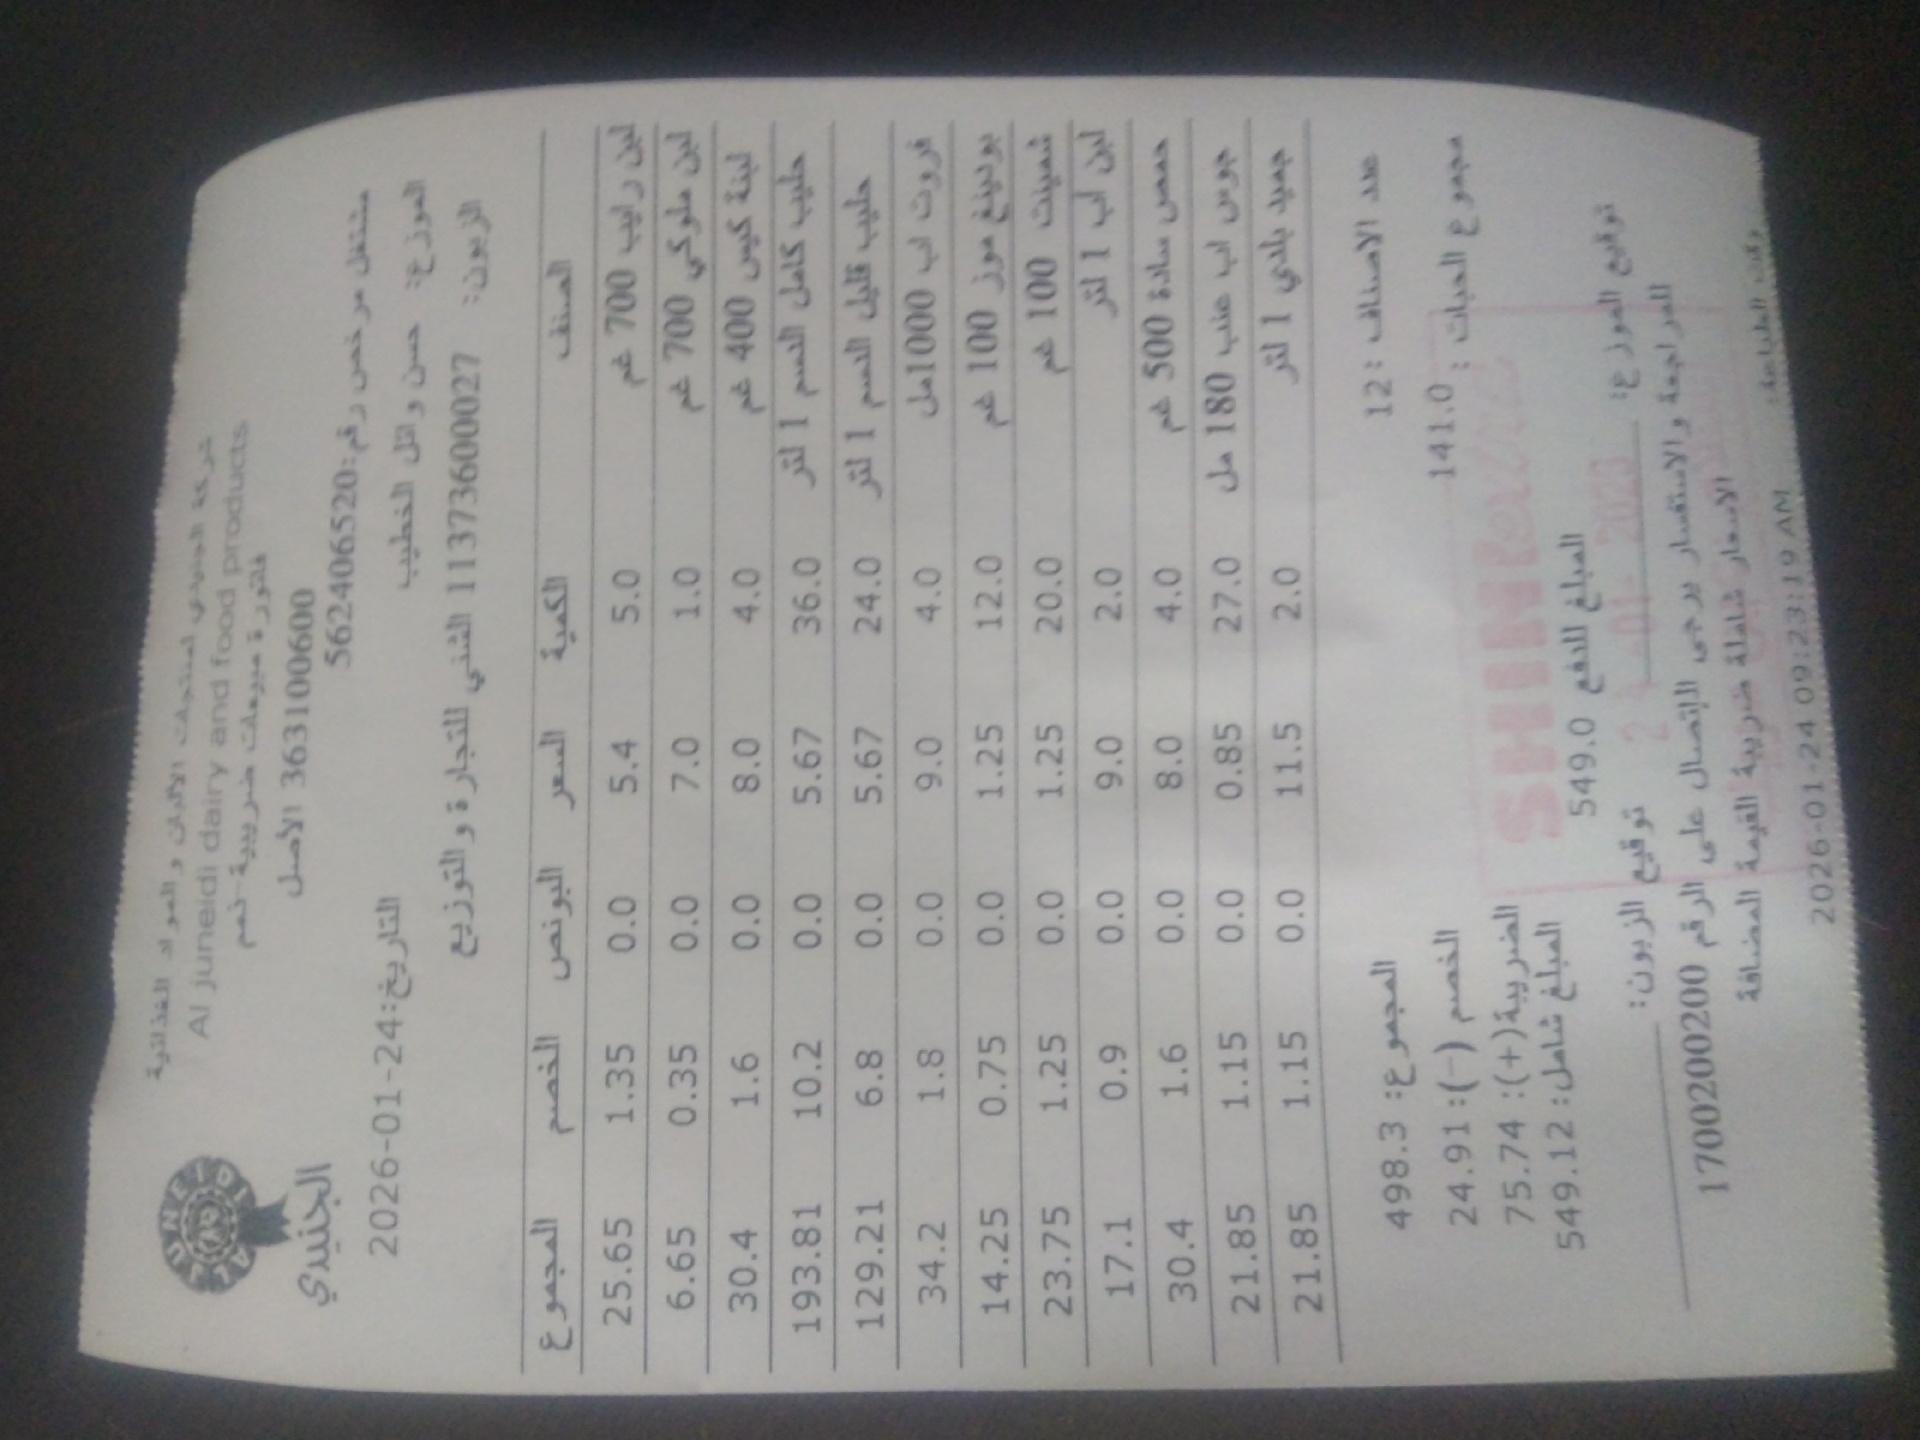 شركة الجنيدي لمنتجات الالبان و المواد الغذائية
Al juneidi dairy and food products
فاتورة مبيعات ضريبية-نمم
363100600 الأصل
JUNEIDI
الجنيدي
مشتغل مرخص رقم:562406520
الموزع: حسن وائل الخطيب
التاريخ:24-01-2026
الزبون: 1137360027 الشني للتجارة والتوزيع
الصنف الكمية السعر البونص الخصم المجموع
لبن رايب 700 غم 5.0 5.4 0.0 1.35 25.65
لبن ملوكي 700 غم 1.0 7.0 0.0 0.35 6.65
لبنة كيس 400 غم 4.0 8.0 0.0 1.6 30.4
حليب كامل الدسم 1 لتر 36.0 5.67 0.0 10.2 193.81
حليب قليل الدسم 1 لتر 24.0 5.67 0.0 6.8 129.21
فروت اب 1000مل 4.0 9.0 0.0 1.8 34.2
بودينغ موز 100 غم 12.0 1.25 0.0 0.75 14.25
شمينت 100 غم 20.0 1.25 0.0 1.25 23.75
لبن اب 1 لتر 2.0 9.0 0.0 0.9 17.1
حمص سادة 500 غم 4.0 8.0 0.0 1.6 30.4
جوس اب عنب 180 مل 27.0 0.85 0.0 1.15 21.85
جميد بلدي 1 لتر 2.0 11.5 0.0 1.15 21.85
عدد الاصناف : 12 المجموع: 498.3
مجموع الحبات : 141.0 الخصم (-): 24.91
الضريبة(+): 75.74
المبلغ للدفع 549.0 المبلغ شامل: 549.12
SHINI
توقيع الموزع: توقيع الزبون:
للمراجعة والاستفسار يرجى الإتصال على الرقم 1700200200
الاسعار شاملة ضريبة القيمة المضافة
وقت الطباعة: 2026-01-24 09:23:19 AM